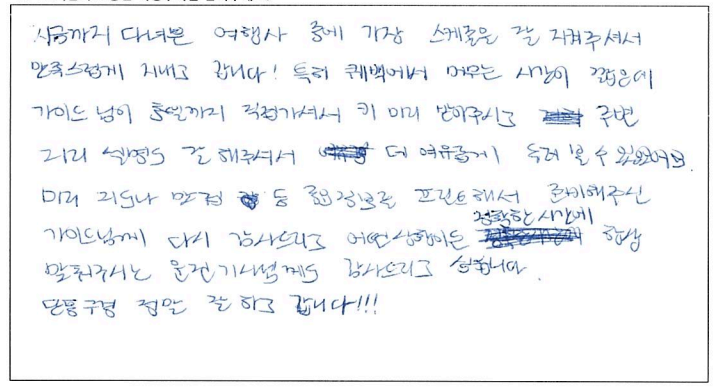 지금까지 다녀본 여행사 중에 가장 스케줄을 잘 지켜주셔서
만족스럽게 지내고 갑니다! 특히 퀘백에서 머무는 시간이 짧은데
가이드님이 호텔까지 직접가셔서 키 미리 받아주시고 주변
지리 설명도 잘 해주셔서 더 여유롭게 둘러 볼 수 있었어요.
미리 지도나 맛집 등 정보를 프린트해서 준비해주신
가이드님께 다시 감사드리고 어떤상황이든 정확한 시간에 항상
맞춰주시는 운전기사님께도 감사드리고 싶습니다.
단풍구경 정말 잘 하고 갑니다!!!